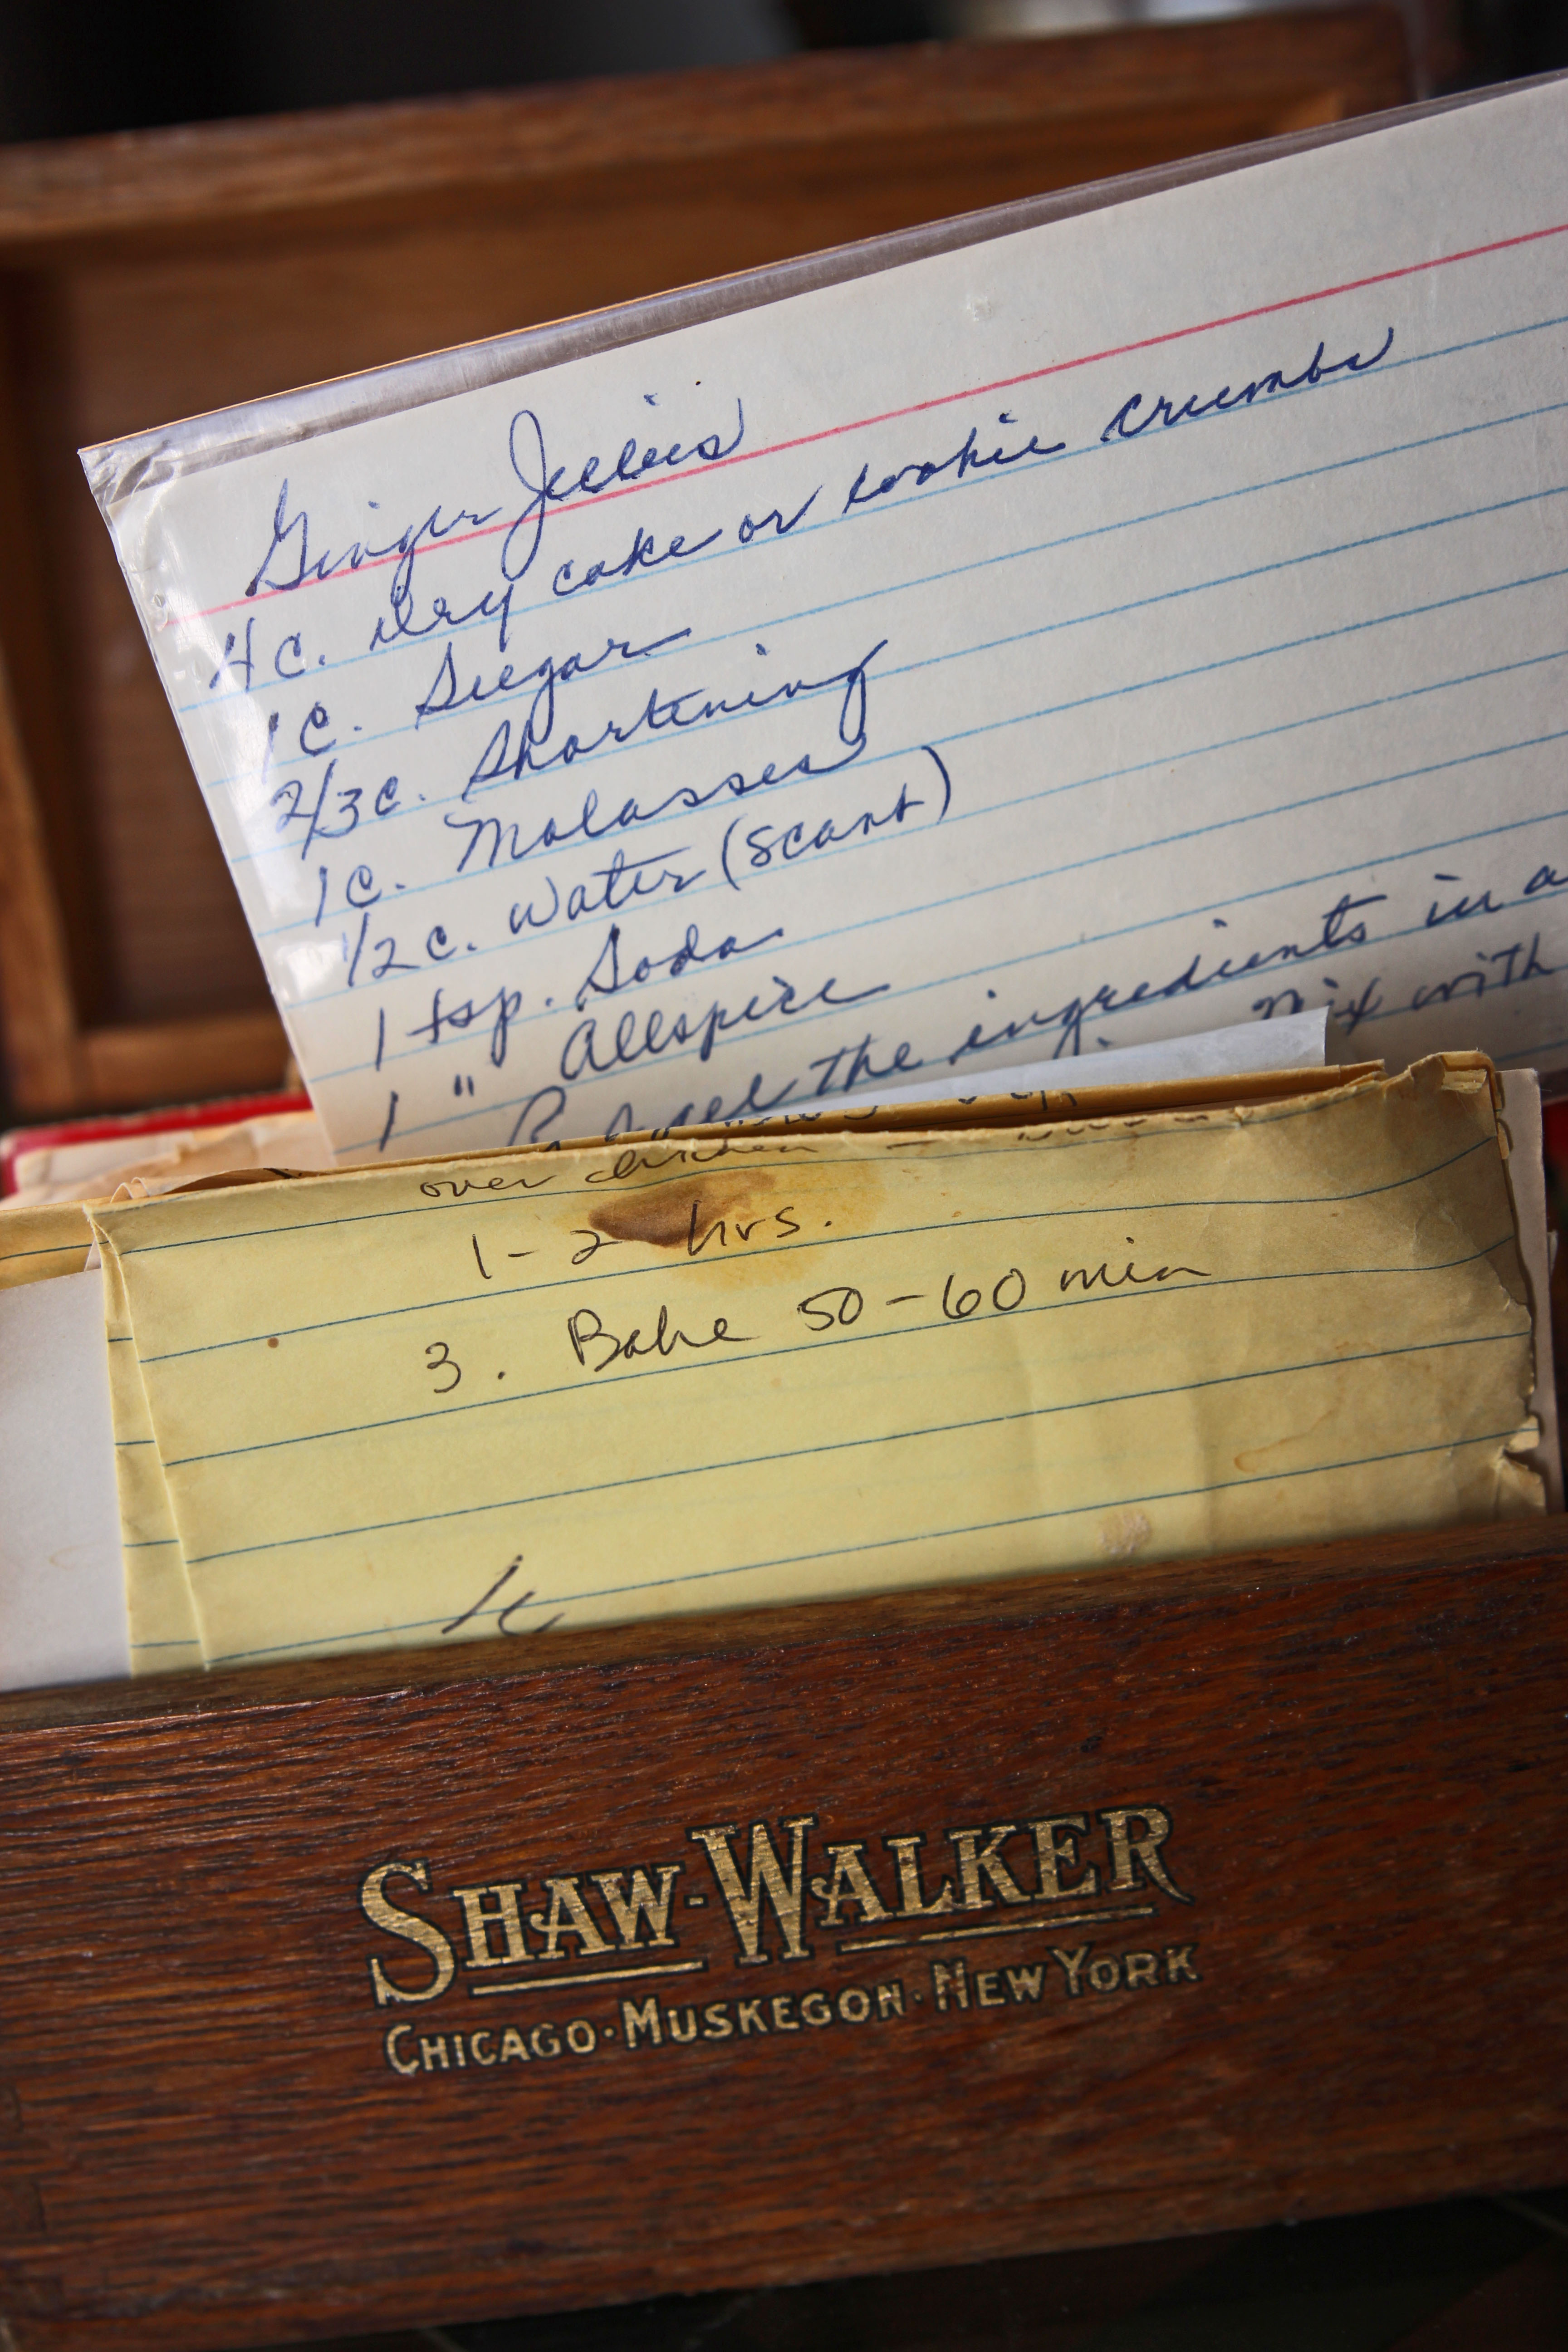 Ginger Jellies
4 c. dry cake or cookie crumbs
1 c. Sugar
2/3 c. Shortening
1 c. Molasses
1/2 c. water (scant)
1 tsp. Soda
1 " Allspice
the ingredients in a
Mix with
over chicken
1-2 hrs.
3. Bake 50-60 min
SHAW-WALKER
CHICAGO·MUSKEGON·NEW YORK